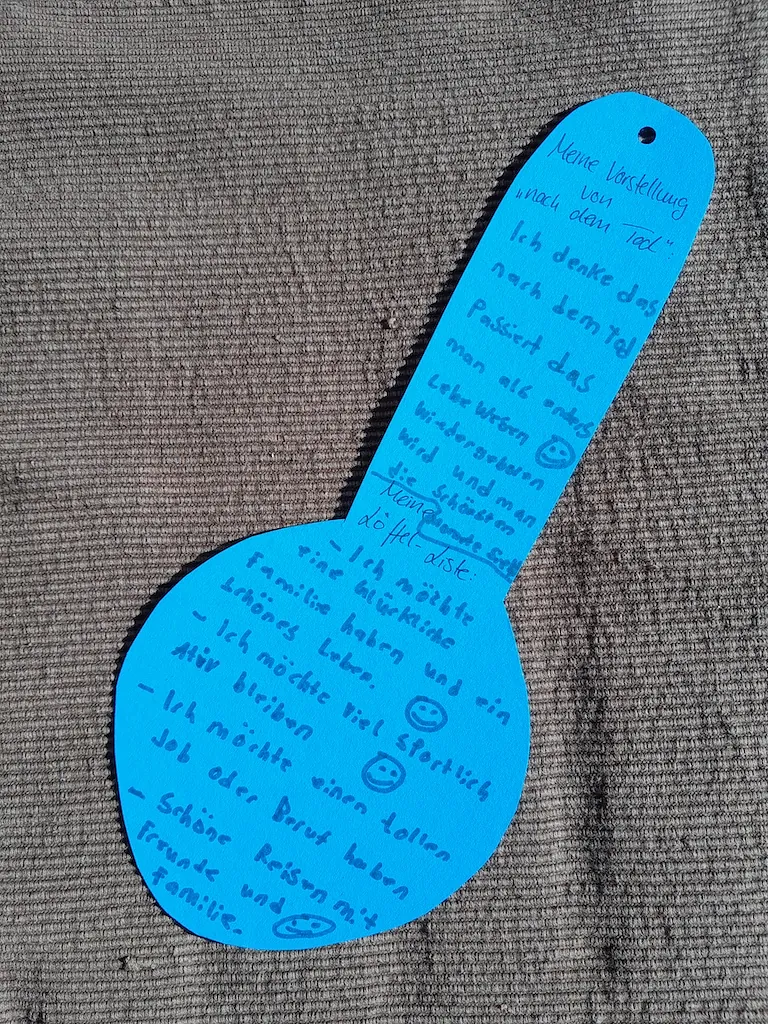 Meine Vorstellung
von
„nach dem Tod":
Ich denke das
nach dem Tod
Passiert das
man als anders
Lebe Wesen
wiedergeboren
wird und man
die Schönsten
Meine
Löffel-Liste:
- Ich möchte
eine Glückliche
Familie haben und ein
schönes Leben.
- Ich möchte viel Sportlich
Ativ bleiben
- Ich möchte einen tollen
Job oder Beruf haben
- Schöne Reisen mit
Freunde und
Familie.